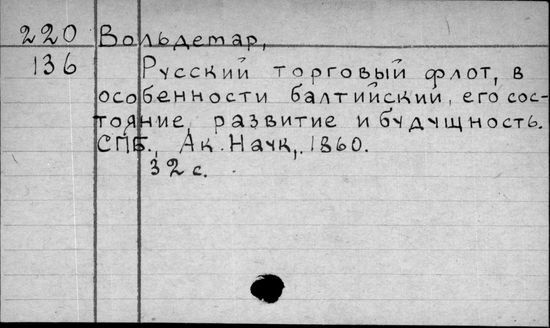 220 Вольдемар,
136 Русский торговый флот, в
особенности балтийский, его сос-
тояние, развитие и будущность.
СПБ., Ак. Наук, 1860.
32 с.